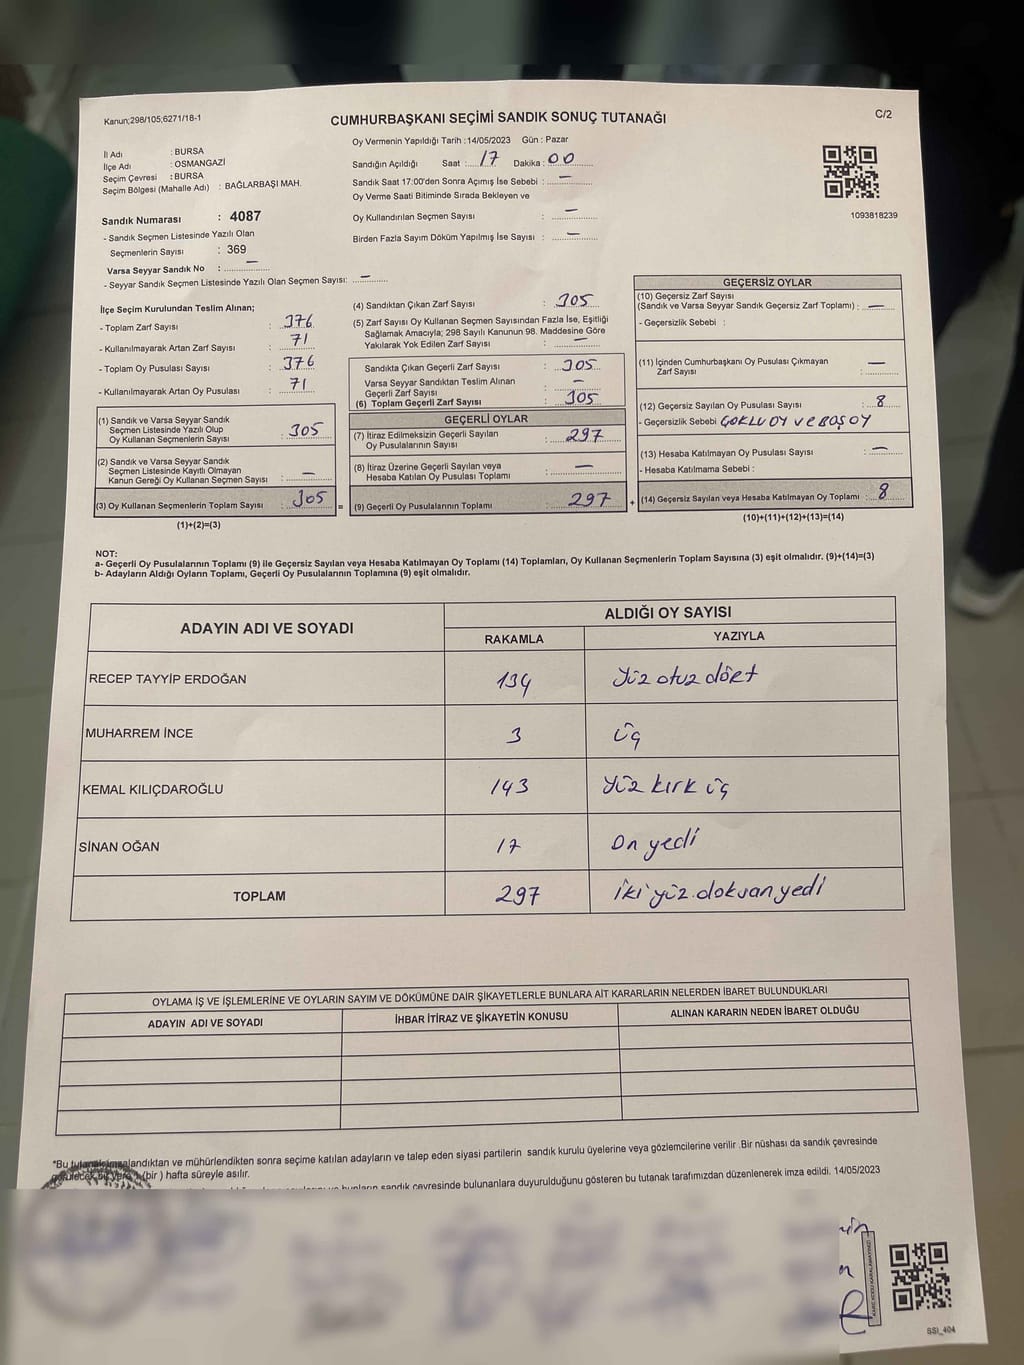 Kanun;298/105;6271/18-1
CUMHURBAŞKANI SEÇİMİ SANDIK SONUÇ TUTANAĞI
C/2
İl Adı : BURSA
İlçe Adı : OSMANGAZİ
Seçim Çevresi : BURSA
Seçim Bölgesi (Mahalle Adı) : BAĞLARBAŞI MAH.
Sandık Numarası : 4087
- Sandık Seçmen Listesinde Yazılı Olan
Seçmenlerin Sayısı : 369
Varsa Seyyar Sandık No : —
- Seyyar Sandık Seçmen Listesinde Yazılı Olan Seçmen Sayısı: —
Oy Vermenin Yapıldığı Tarih : 14/05/2023 Gün : Pazar
Sandığın Açıldığı Saat : 17 Dakika : 00
Sandık Saat 17:00'den Sonra Açılmış İse Sebebi : —
Oy Verme Saati Bitiminde Sırada Bekleyen ve
Oy Kullandırılan Seçmen Sayısı : —
Birden Fazla Sayım Döküm Yapılmış İse Sayısı : —
1093818239
İlçe Seçim Kurulundan Teslim Alınan;
- Toplam Zarf Sayısı : 376
- Kullanılmayarak Artan Zarf Sayısı : 71
- Toplam Oy Pusulası Sayısı : 376
- Kullanılmayarak Artan Oy Pusulası : 71
(1) Sandık ve Varsa Seyyar Sandık
Seçmen Listesinde Yazılı Olup
Oy Kullanan Seçmenlerin Sayısı : 305
(2) Sandık ve Varsa Seyyar Sandık
Seçmen Listesinde Kayıtlı Olmayan
Kanun Gereği Oy Kullanan Seçmen Sayısı : —
(3) Oy Kullanan Seçmenlerin Toplam Sayısı : 305
(1)+(2)=(3)
(4) Sandıktan Çıkan Zarf Sayısı : 305
(5) Zarf Sayısı Oy Kullanan Seçmen Sayısından Fazla İse, Eşitliği
Sağlamak Amacıyla; 298 Sayılı Kanunun 98. Maddesine Göre
Yakılarak Yok Edilen Zarf Sayısı : —
Sandıkta Çıkan Geçerli Zarf Sayısı : 305
Varsa Seyyar Sandıktan Teslim Alınan
Geçerli Zarf Sayısı : —
(6) Toplam Geçerli Zarf Sayısı : 305
GEÇERLİ OYLAR
(7) İtiraz Edilmeksizin Geçerli Sayılan
Oy Pusulasının Sayısı : 297
(8) İtiraz Üzerine Geçerli Sayılan veya
Hesaba Katılan Oy Pusulası Toplamı : —
= (9) Geçerli Oy Pusulalarının Toplamı : 297 +
GEÇERSİZ OYLAR
(10) Geçersiz Zarf Sayısı
(Sandık ve Varsa Seyyar Sandık Geçersiz Zarf Toplamı) : —
- Geçersizlik Sebebi :
(11) İçinden Cumhurbaşkanı Oy Pusulası Çıkmayan
Zarf Sayısı : —
(12) Geçersiz Sayılan Oy Pusulası Sayısı : 8
- Geçersizlik Sebebi ÇOKLU OY VE BOŞ OY
(13) Hesaba Katılmayan Oy Pusulası Sayısı : —
- Hesaba Katılmama Sebebi :
(14) Geçersiz Sayılan veya Hesaba Katılmayan Oy Toplamı : 8
(10)+(11)+(12)+(13)=(14)
NOT:
a- Geçerli Oy Pusulalarının Toplamı (9) ile Geçersiz Sayılan veya Hesaba Katılmayan Oy Toplamı (14) Toplamları, Oy Kullanan Seçmenlerin Toplam Sayısına (3) eşit olmalıdır. (9)+(14)=(3)
b- Adayların Aldığı Oyların Toplamı, Geçerli Oy Pusulalarının Toplamına (9) eşit olmalıdır.
ADAYIN ADI VE SOYADI ALDIĞI OY SAYISI
RAKAMLA YAZIYLA
RECEP TAYYİP ERDOĞAN 134 Yüz otuz dört
MUHARREM İNCE 3 üç
KEMAL KILIÇDAROĞLU 143 Yüz kırk üç
SİNAN OĞAN 17 On yedi
TOPLAM 297 iki yüz doksan yedi
OYLAMA İŞ VE İŞLEMLERİNE VE OYLARIN SAYIM VE DÖKÜMÜNE DAİR ŞİKAYETLERLE BUNLARA AİT KARARLARIN NELERDEN İBARET BULUNDUKLARI
ADAYIN ADI VE SOYADI İHBAR İTİRAZ VE ŞİKAYETİN KONUSU ALINAN KARARIN NEDEN İBARET OLDUĞU
*Bu tutanak imzalandıktan ve mühürlendikten sonra seçime katılan adayların ve talep eden siyasi partilerin sandık kurulu üyelerine veya gözlemcilerine verilir .Bir nüshası da sandık çevresinde
görülecek bir yere 1 (bir ) hafta süreyle asılır.
bunların sandık çevresinde bulunanlara duyurulduğunu gösteren bu tutanak tarafımızdan düzenlenerek imza edildi. 14/05/2023
KARE KODU KARALAMAYINIZ!
SSI_404